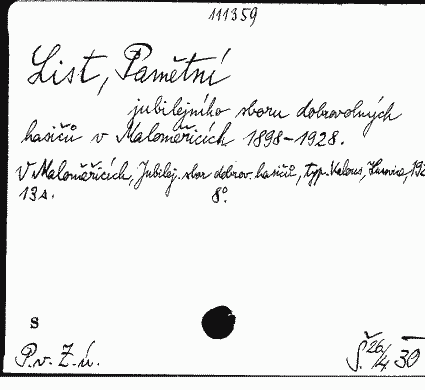 111359
List, Pamětní
jubilejního sboru dobrovolných
hasičů v Maloměřicích 1898-1928.
V Maloměřicích, Jubilej. sbor dobrov. hasičů, typ. Kalous,
13 s. 8°.
S
P. v. Z. ú. Š. 26/4 30